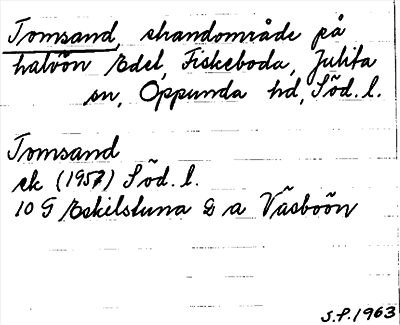 Tomsand, strandområde på
halvön Edel, Fiskeboda, Julita
sn, Oppunda hd, Söd. l.
Tomsand
ek (1957) Söd. l.
10 G Eskilstuna G a Väsboön
S.P. 1963